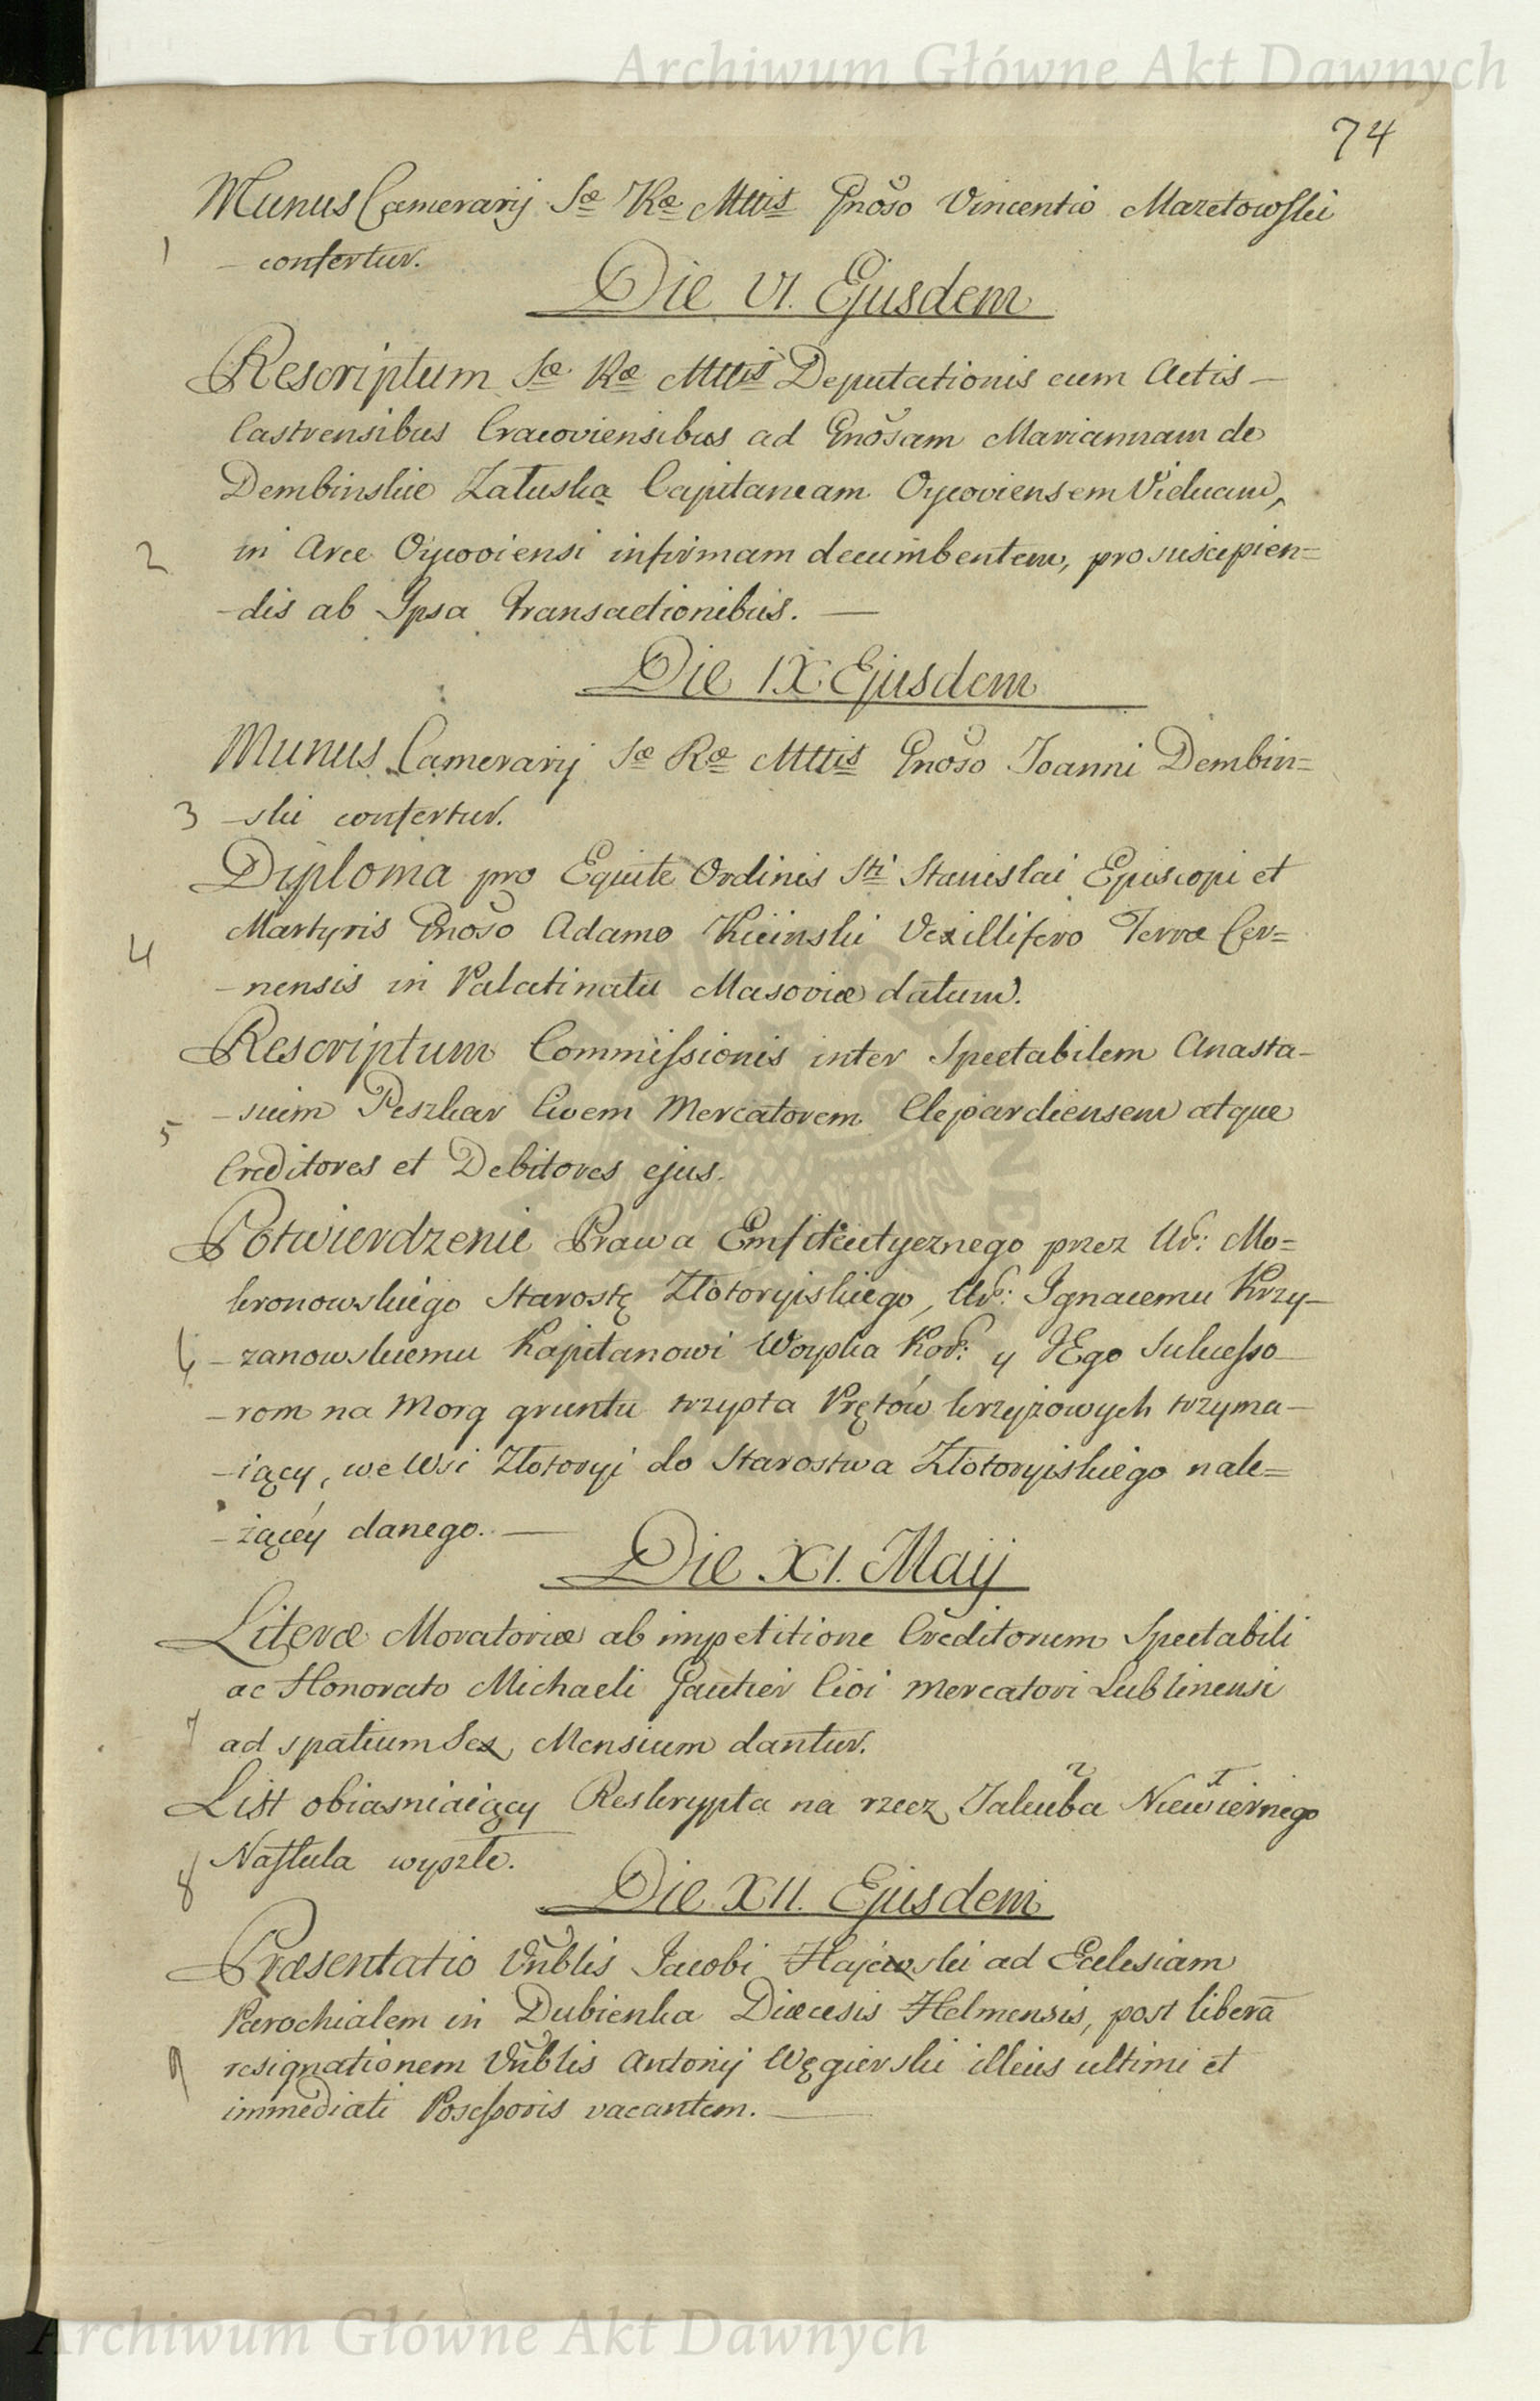 Archiwum Główne Akt Dawnych
74
Munus Camerarij Sæ Ræ Mttis Gnoso Vincentio Mazetowski
1 - confertur.
Die VI. Ejusdem
Rescriptum Sæ Ræ Mttis Deputationis cum Actis —
Castrensibus Cracoviensibus ad Gnosam Mariannam de
Dembinskie Załuska Capitaneam Oycoviensem Viduam,
2 in Arce Oycoviensi infirmam decumbentem, pro suscipien=
-dis ab Ipsa Transactionibus. —
Die IX Ejusdem
Munus Camerarij Sæ Ræ Mttis Gnoso Joanni Dembin=
3 -ski confertur.
Diploma pro Equite Ordinis Sti Stanislai Episcopi et
4 Martyris Gnoso Adamo Kicinski Vexillifero Terræ Cer=
-nensis in Palatinatu Masoviæ datum.
Rescriptum Commissionis inter Spectabilem Anasta-
5 -sium Peszkar Civem Mercatorem Clepardiensem atque
Creditores et Debitores ejus.
Potwierdzenie Prawa Emfiteutycznego przez Ur: Mo=
kronowskiego Starostę Złotoryiskiego, Ur: Ignacemu Krzy-
6 -zanowskiemu Kapitanowi Woyska Kor: y JEgo Sukcesso-
-rom na Morg gruntu trzysta Prętów krzyżowych trzyma-
-iący, we Wsi Złotoryi do Starostwa Złotoryiskiego nale=
-żącéy danego. —
Die XI. Maij
Literæ Moratoriæ ab impetitione Creditorum Spectabili
ac Honorato Michaeli Gautier Civi Mercatori Lublinensi
7 ad spatium Sex Mensium dantur.
List obiasniaiący Reskrypta na rzecz Jakuba Niewiernego
8 Naskula wyszłe.
Die XII. Ejusdem
Præsentatio Vnblis Jacobi Hajewski ad Ecclesiam
Parochialem in Dubienka Diæcesis Helmensis, post liberā
9 resignationem Vnblis Antonij Węgierski illeius ultimi et
immediati Possessoris vacantem. —
Archiwum Główne Akt Dawnych